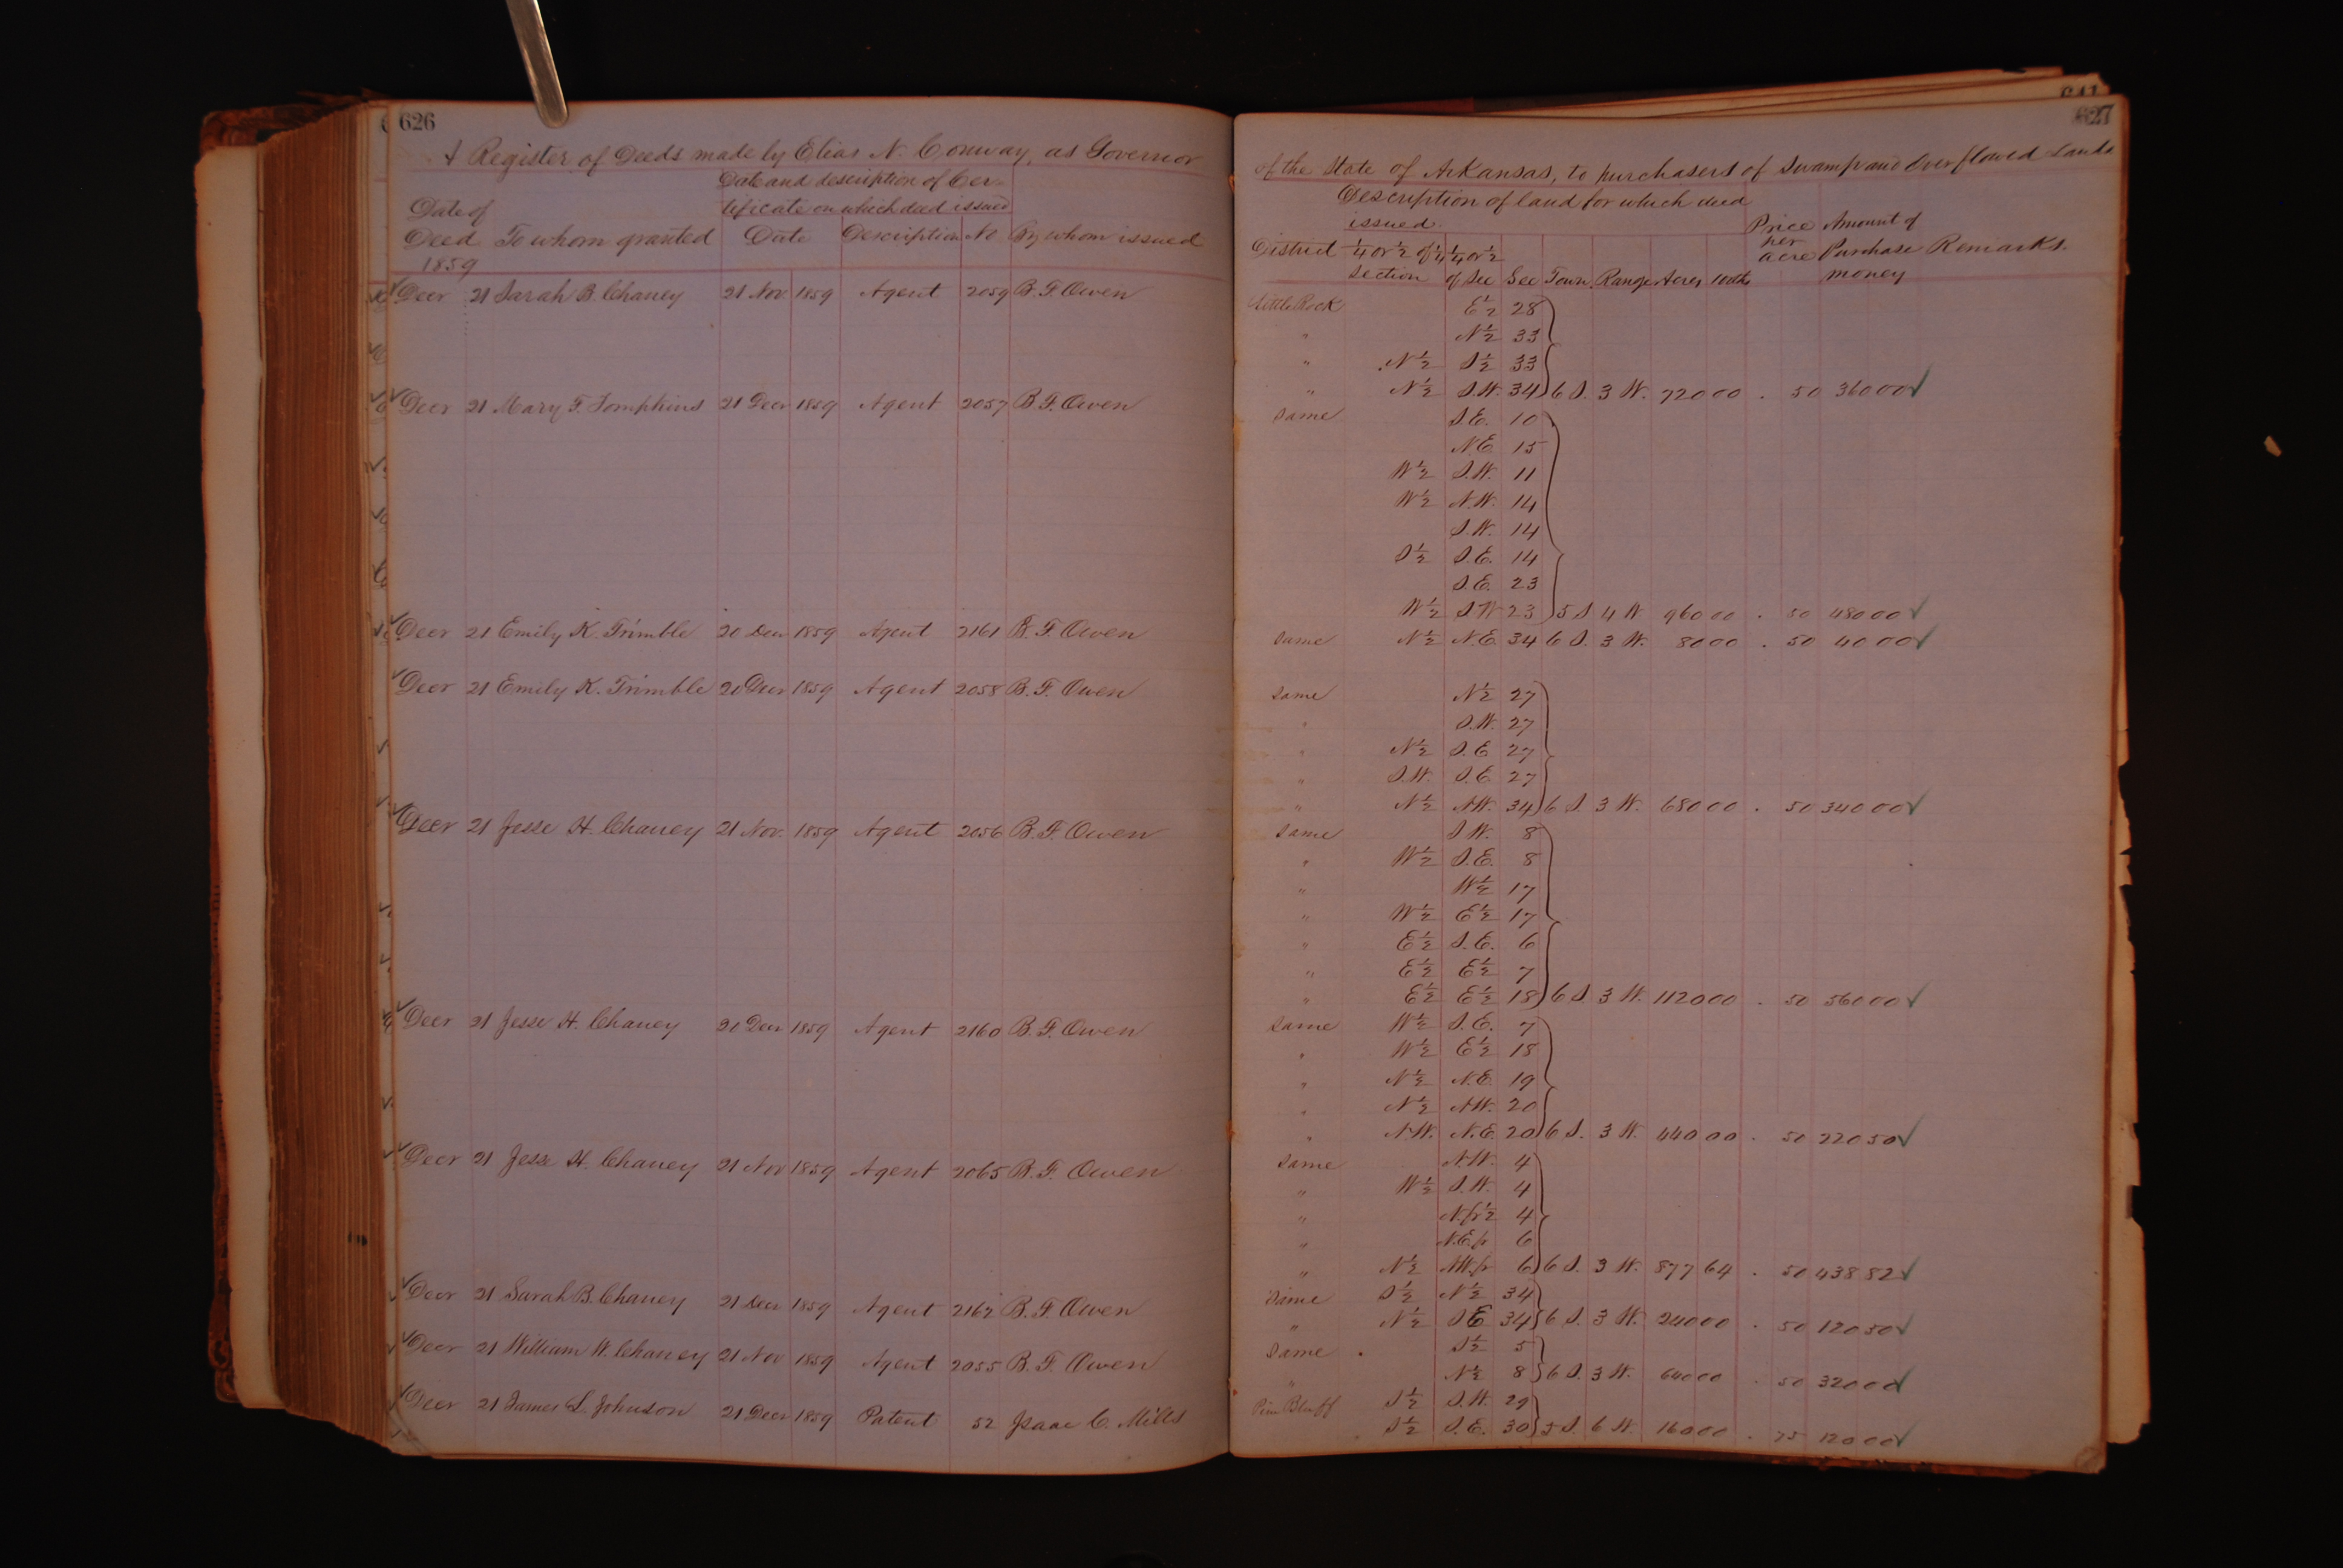 626
A Register of Deeds made by Elias N. Conway, as Governor
Date and description of Cer-
Date of tificate on which deed issued
Deed To whom granted Date Description No By whom issued
1859
Decr 21 Sarah B. Chaney 21 Nov. 1859 Agent 2059 B. F. Owen
Decr 21 Mary F. Tompkins 21 Decr 1859 Agent 2057 B. F. Owen
Decr 21 Emily K. Trimble 20 Decr 1859 Agent 2161 B. F. Owen
Decr 21 Emily K. Trimble 20 Decr 1859 Agent 2058 B. F. Owen
Decr 21 Jesse H. Chaney 21 Nov. 1859 Agent 2056 B. F. Owen
Decr 21 Jesse H. Chaney 20 Decr 1859 Agent 2160 B. F. Owen
Decr 21 Jesse H. Chaney 21 Nov 1859 Agent 2065 B. F. Owen
Decr 21 Sarah B. Chaney 21 Decr 1859 Agent 2162 B. F. Owen
Decr 21 William W. Chaney 21 Nov 1859 Agent 2055 B. F. Owen
Decr 21 James L. Johnson 21 Decr 1859 Patent 52 Isaac C. Mills
641
627
of the State of Arkansas, to purchasers of Swamp and Overflowed Lands
Description of land for which deed
issued
Price Amount of
District ¼ or ½ of ¼ ¼ or ½ per Purchase Remarks.
Section of Sec Sec Town. Range Acres 100ths acre money
Little Rock E½ 28
" N½ 33
" N½ S½ 33
" N½ S.W. 34 6 S. 3 W. 720 00 . 50 360 00 ✓
Same S.E. 10
N.E 15
W½ S.W. 11
W½ N.W. 14
S.W. 14
S½ S.E. 14
S.E. 23
W½ SW 23 5 S 4 W 960 00 . 50 480 00 ✓
Same N½ N.E. 34 6 S. 3 W. 80 00 . 50 40 00 ✓
Same N½ 27
" S.W. 27
" N½ S.E 27
" S.W. S.E. 27
" N½ N.W. 34 6 S. 3 W. 680 00 . 50 340 00 ✓
Same S.W. 8
" W½ S.E. 8
" W½ 17
" W½ E½ 17
" E½ S.E. 6
" E½ E½ 7
" E½ E½ 18 6 S. 3 W. 1120 00 . 50 560 00 ✓
Same W½ S.E. 7
" W½ E½ 18
" N½ N.E 19
" N½ N.W. 20
" N.W. N.E. 20 6 S. 3 W. 440 00 . 50 220 50 ✓
Same N.W. 4
" W½ S.W. 4
" N.fr½ 4
" N.E.fr 6
" N½ N.W.fr 6 6 S. 3 W. 877 64 . 50 438 82 ✓
Same S½ N½ 34
" N½ S E 34 6 S. 3 W. 240 00 . 50 120 50 ✓
Same S½ 5
" N½ 8 6 S. 3 W. 640 00 . 50 320 00 ✓
Pine Bluff S½ S.W. 29
S½ S.E. 30 5 S. 6 W. 160 00 . 75 120 00 ✓